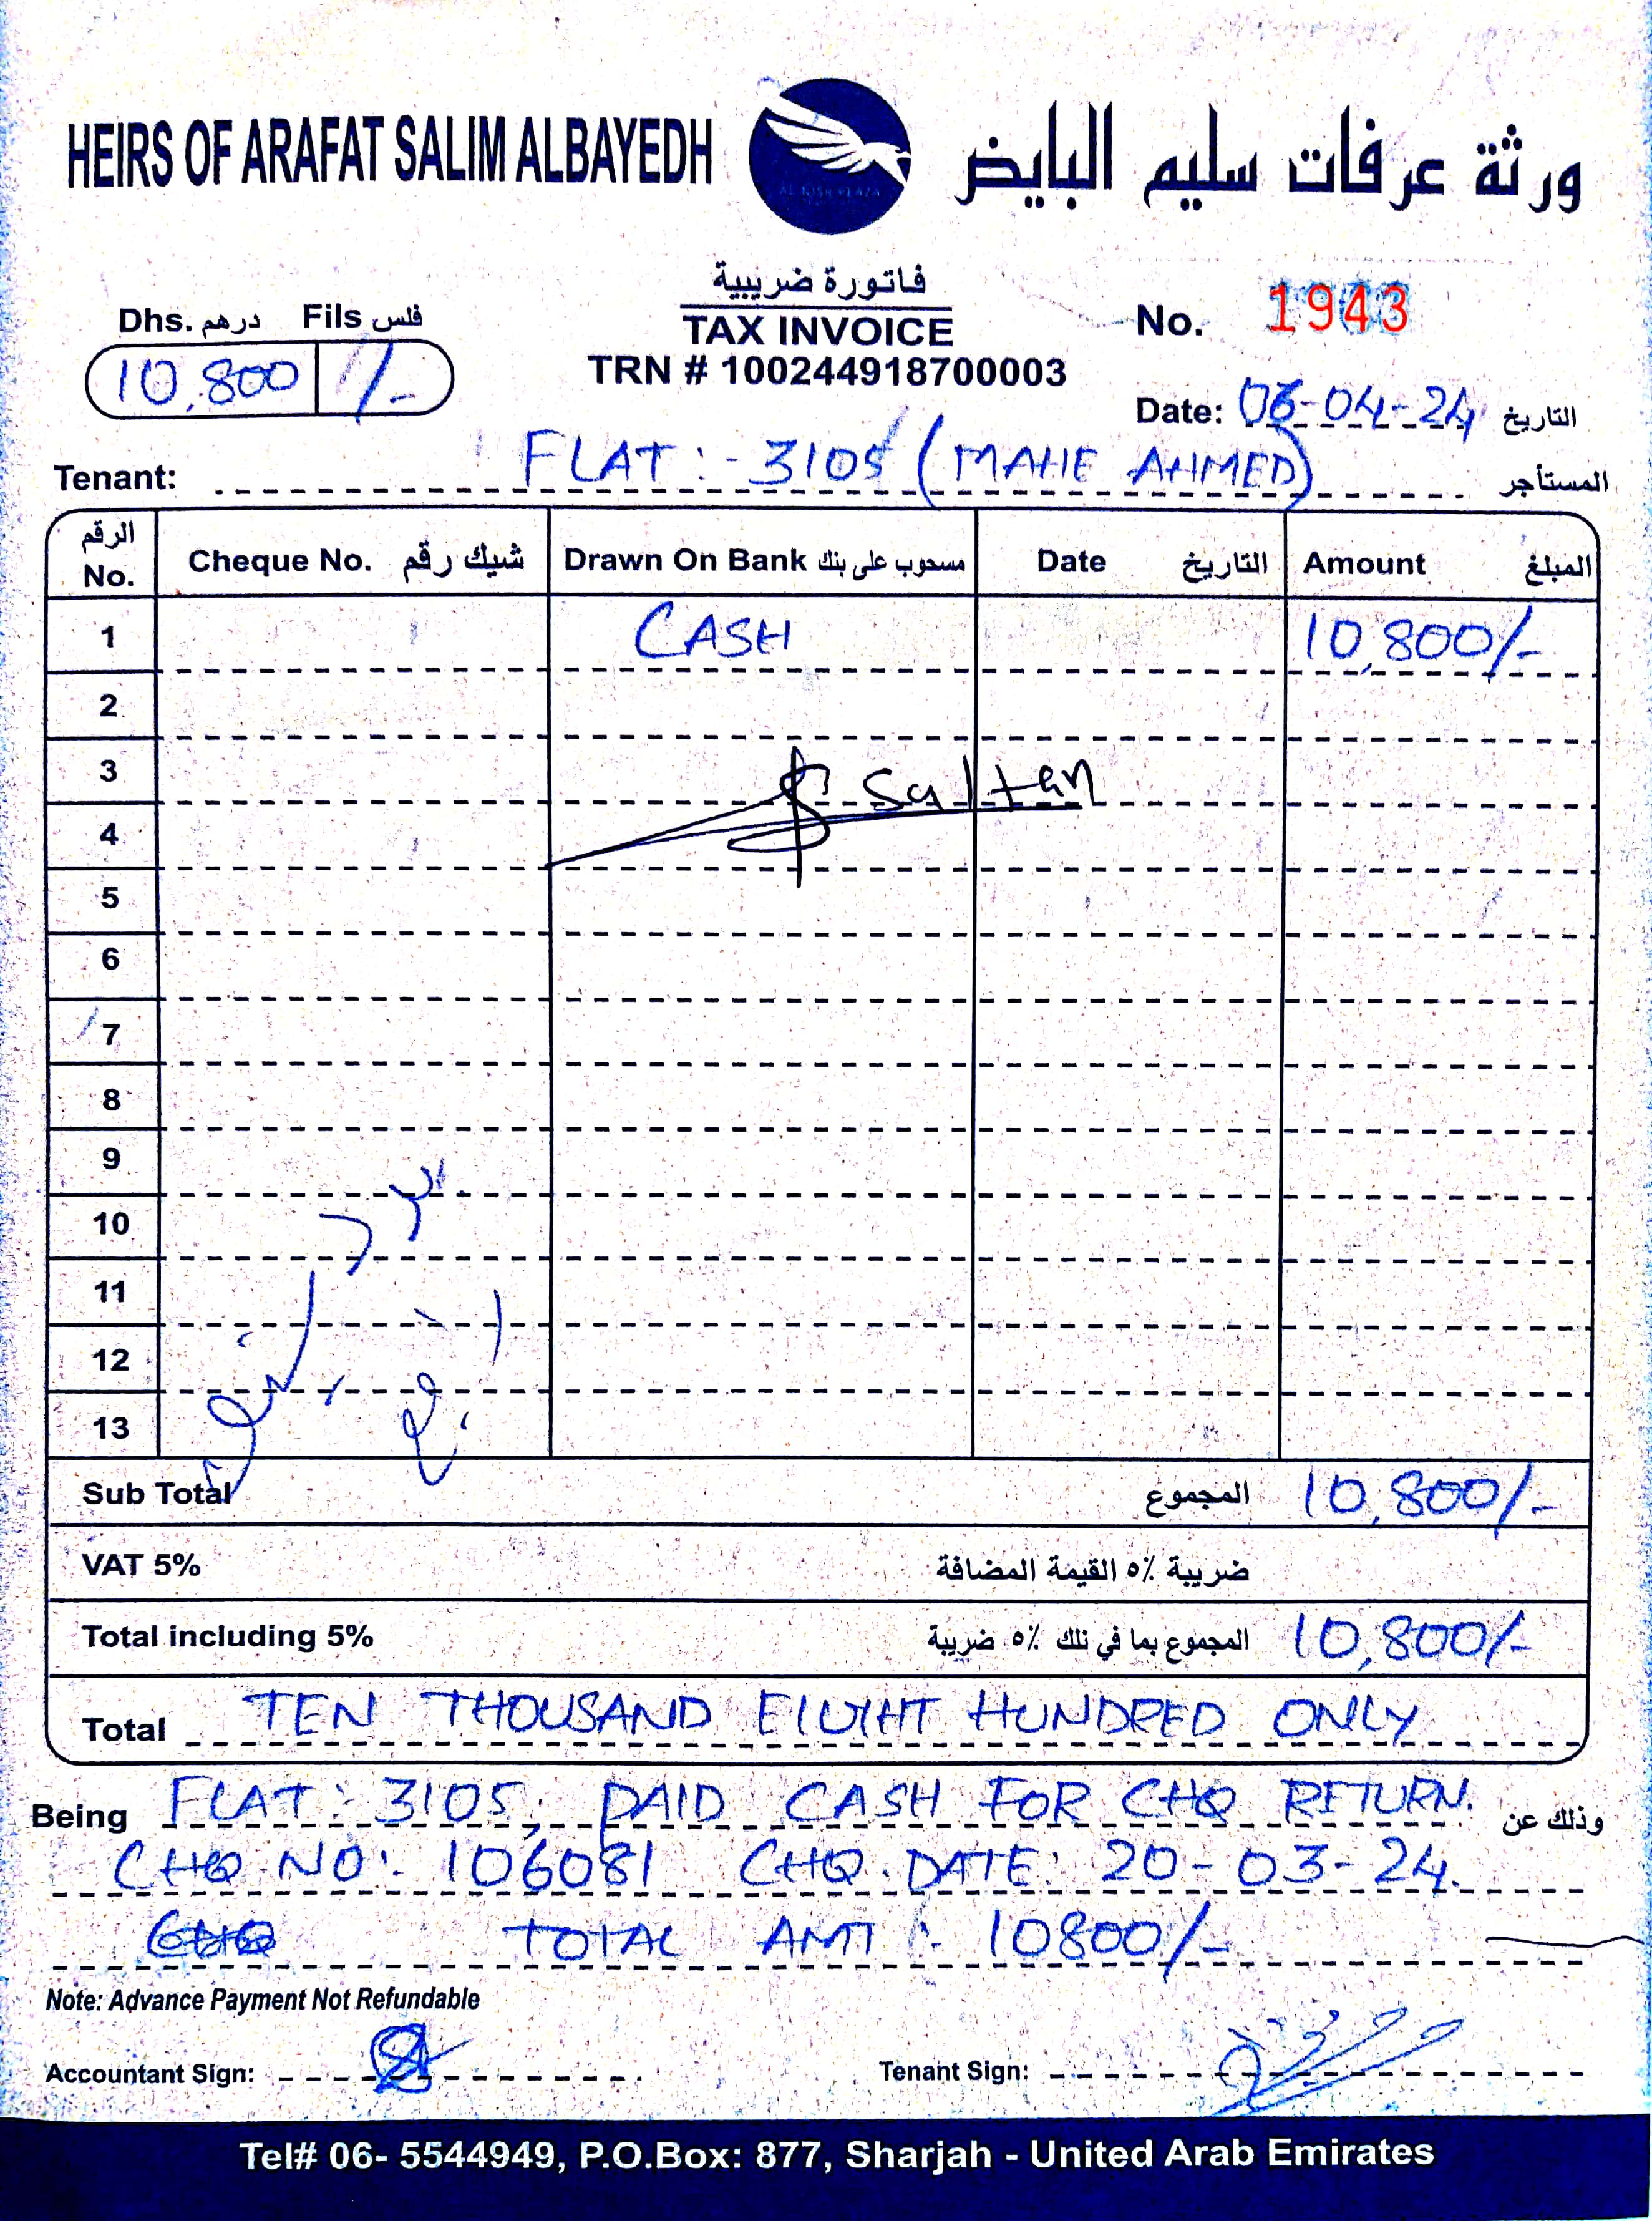 HEIRS OF ARAFAT SALIM ALBAYEDH
ورثة عرفات سليم البايض
فاتورة ضريبية
TAX INVOICE
TRN # 100244918700003
Dhs. درهم Fils فلس
10,800 /-
No. 1943
Date: 06-04-24 التاريخ
Tenant: FLAT:- 3105 (MAHE AHMED) المستأجر
الرقم No. Cheque No. شيك رقم Drawn On Bank مسحوب على بنك Date التاريخ Amount المبلغ
1 CASH 10,800/-
2
3 Saltan
4
5
6
7
8
9
10
11
12
13
Sub Total المجموع 10,800/-
VAT 5% ضريبة ٥٪ القيمة المضافة
Total including 5% المجموع بما في ذلك ٥٪ ضريبة 10,800/-
Total TEN THOUSAND EIGHT HUNDRED ONLY
Being FLAT: 3105, PAID CASH FOR CHQ RETURN. وذلك عن
CHQ NO:- 106081 CHQ. DATE: 20-03-24.
TOTAL AMT :- 10800/-
Note: Advance Payment Not Refundable
Accountant Sign: Tenant Sign:
Tel# 06- 5544949, P.O.Box: 877, Sharjah - United Arab Emirates